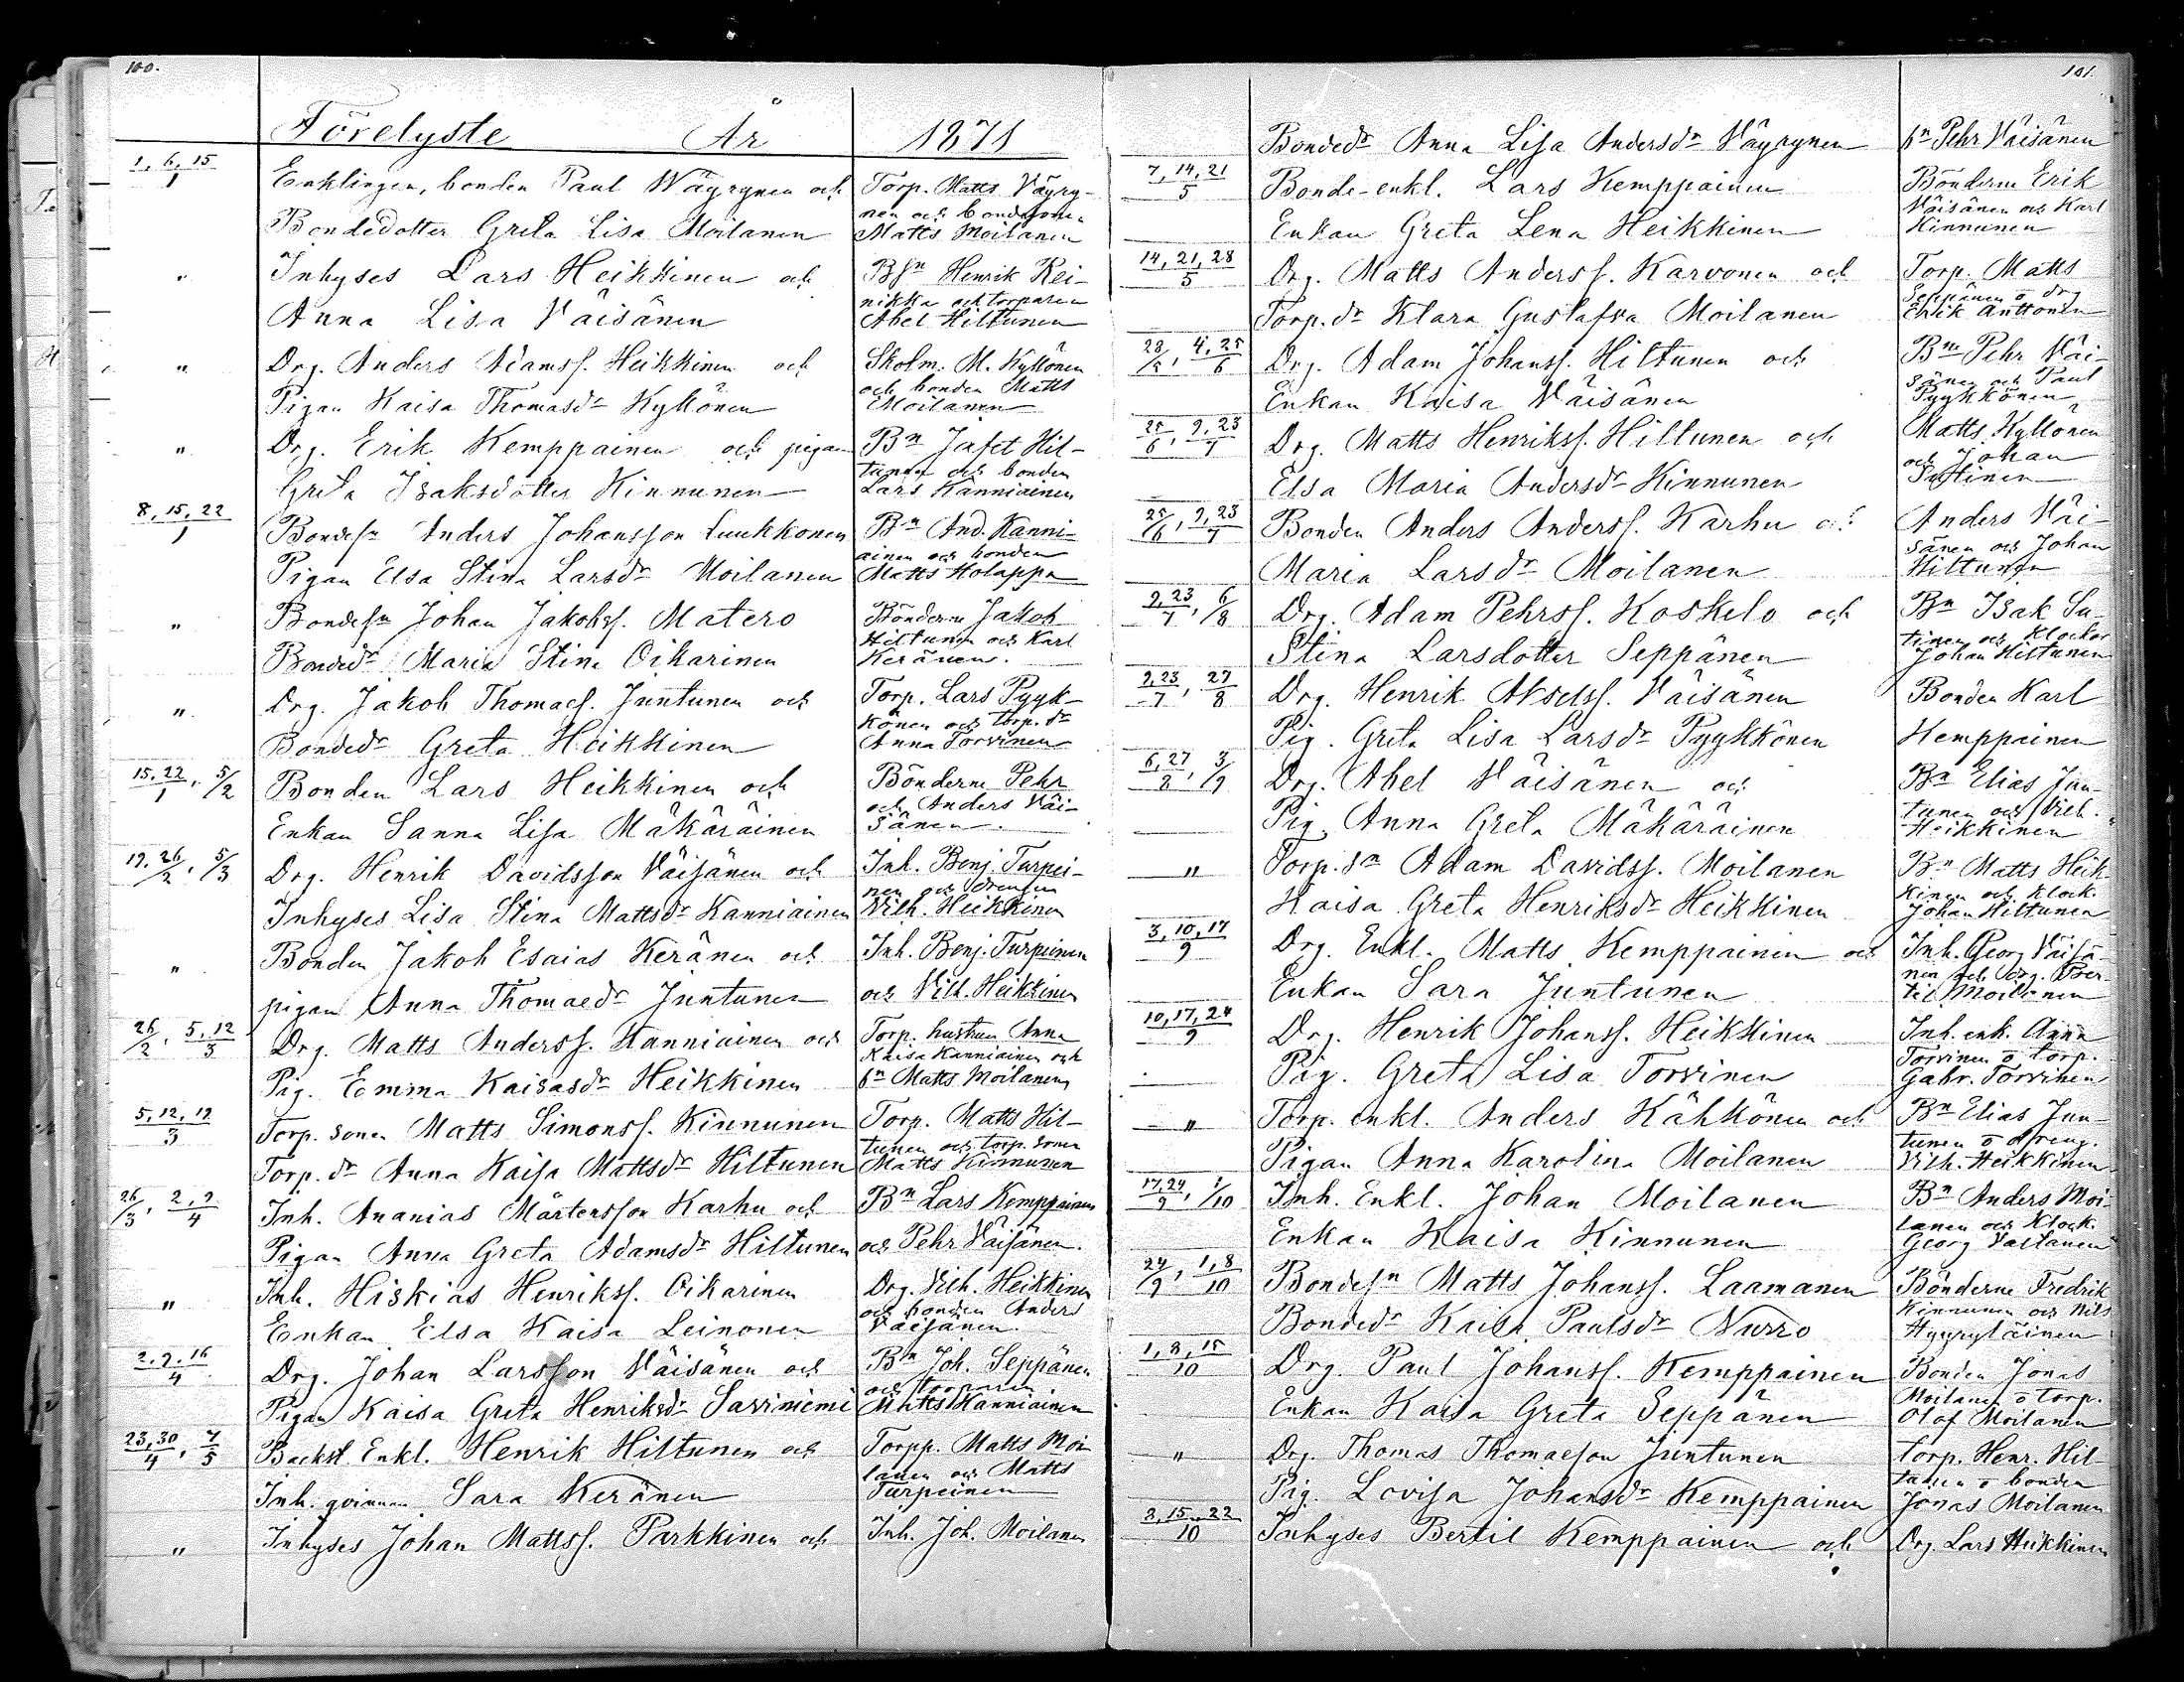 100.
Förelyste År 1871
1, 6, 15/1 Enklingen, bonden Paul Wäyrynen och Torp. Matts Väyry-
nen och bondesonen
Bondedotter Greta Lisa Moilanen Matts Moilanen
" Inhyses Lars Heikkinen och Bsn Henrik Kei-
nikka och torparen
Anna Lisa Väisänen Abel Hiltunen
" Drg. Anders Adamss. Heikkinen och Skolm. M. Kyllönen
och bonden Matts
Pigan Kaisa Thomasdr Kyllönen Moilanen
" Drg. Erik Kemppainen och pigan Bn Jafet Hil-
tunen och bonden
Greta Isaksdotter Kinnunen Lars Kanniainen
8, 15, 22/1 Bondesn Anders Johansson Luukkonen Bn And. Kanni-
ainen och bonden
Pigan Elsa Stina Larsdr Moilanen Matts Holappa
" Bondesn Johan Jakobss. Matero Bönderne Jakob
Hiltunen och Karl
Bondedr Maria Stina Oikarinen Keränen.
" Drg. Jakob Thomaes. Juntunen och Torp. Lars Pyyk-
könen och torp. dr
Bondedr Greta Heikkinen Anna Torvinen
15, 22/1, 5/2 Bonden Lars Heikkinen och Bönderne Pehr
och Anders Väi-
Enkan Sanna Lisa Mäkäräinen sänen.
19, 26/2, 5/3 Drg. Henrik Davidsson Väisänen och Inh. Benj. Turpei-
nen och drengen
Inhyses Lisa Stina Mattsdr Kanniainen Vilh. Heikkinen
" Bonden Jakob Esaias Keränen och Inh. Benj. Turpeinen
pigan Anna Thomaedr Juntunen och Vilh. Heikkinen
26/2, 5, 12/3 Drg. Matts Anderss. Kanniainen och Torp. hustrun Anna
Kaisa Kanniainen och
Pig. Emma Kaisasdr Heikkinen bn Matts Moilanen
5, 12, 19/3 Torp. sonen Matts Simonss. Kinnunen Torp. Matts Hil-
tunen och torp. sonen
Torp. dr Anna Kaisa Mattsdr Hiltunen Matts Kinnunen
26/3, 2, 9/4 Inh. Ananias Mårtensson Karhu och Bn Lars Kemppainen
Pigan Anna Greta Adamsdr Hiltunen och Pehr Väisänen.
" Inh. Hiskias Henrikss. Oikarinen Drg. Vilh. Heikkinen
och bonden Anders
Enkan Elsa Kaisa Leinonen Väisänen.
2, 9, 16/4 Drg. Johan Larsson Väisänen och Bn Joh. Seppänen
och torparen
Pigan Kaisa Greta Henriksdr Saviniemi Matts Kanniainen
23, 30/4, 7/5 Backst. Enkl. Henrik Hiltunen och Torpp. Matts Moi-
lanen och Matts
Inh. qvinnan Sara Keränen Turpeinen
" Inhyses Johan Mattss. Parkkinen och Inh. Joh. Moilanen
101.
Bondedr Anna Lisa Andersdr Väyrynen bn Pehr Väisänen
7, 14, 21/5 Bonde-enkl. Lars Kemppainen Bönderne Erik
Väisänen och Karl
Enkan Greta Lena Heikkinen Kinnunen
14, 21, 28/5 Drg. Matts Anderss. Karvonen och Torp. Matts
Seppänen o drg
Torp. dr Klara Gustafva Moilanen Erik Anttonen
28/5, 4, 25/6 Drg. Adam Johanss. Hiltunen och Bn Pehr Väi-
sänen och Paul
Enkan Kaisa Väisänen Pyykkönen
25/6, 9, 23/7 Drg. Matts Henrikss. Hiltunen och Matts Kyllönen
och Johan
Elsa Maria Andersdr Kinnunen Sutinen
25/6, 9, 23/7 Bonden Anders Anderss. Karhu och Anders Väi-
sänen och Johan
Maria Larsdr Moilanen Hiltunen
9, 23/7, 6/8 Drg. Adam Pehrss. Koskelo och Bn Isak Su-
tinen och Klockar
Stina Larsdotter Seppänen Johan Hiltunen
9, 23/7, 27/8 Drg. Henrik Akselss. Väisänen Bonden Karl
Pig. Greta Lisa Larsdr Pyykkönen Kemppainen
6, 27/8, 3/9 Drg. Abel Väisänen och Bn Elias Jun-
tunen och Vilh.
Pig. Anna Greta Mäkäräinen Heikkinen
" Torp. sn Adam Davidss. Moilanen Bn Matts Heik-
kinen och klock.
Kaisa Greta Henriksdr Heikkinen Johan Hiltunen
3, 10, 17/9 Drg. Enkl. Matts Kemppainen och Inh. Georg Väisä-
nen och drg. Ber-
Enkan Sara Juntunen til Moilanen
10, 17, 24/9 Drg. Henrik Johanss. Heikkinen Inh. enk. Anna
Torvinen o torp.
Pig. Greta Lisa Torvinen Gabr. Torvinen
" Torp. enkl. Anders Kähkönen och Bn Elias Jun-
tunen o dreng.
Pigan Anna Karolina Moilanen Vilh. Heikkinen
17, 24/9, 1/10 Inh. Enkl. Johan Moilanen Bn Anders Moi-
lanen och Klock.
Enkan Kaisa Kinnunen Georg Vattanen
24/9, 1, 8/10 Bondesn Matts Johanss. Laamanen Bönderne Fredrik
Kinnunen och Nils
Bondedr Kaisa Paulsdr Nurro Hyyryläinen
1, 8, 15/10 Drg. Paul Johanss. Kemppainen Bonden Jonas
Moilanen o torp.
Enkan Kaisa Greta Seppänen Olof Moilanen
" Drg. Thomas Thomaeson Juntunen Torp. Henr. Hil-
tunen o bonden
Pig. Lovisa Johansdr Kemppainen Jonas Moilanen
8, 15, 22/10 Inhyses Bertil Kemppainen och Drg. Lars Heikkinen